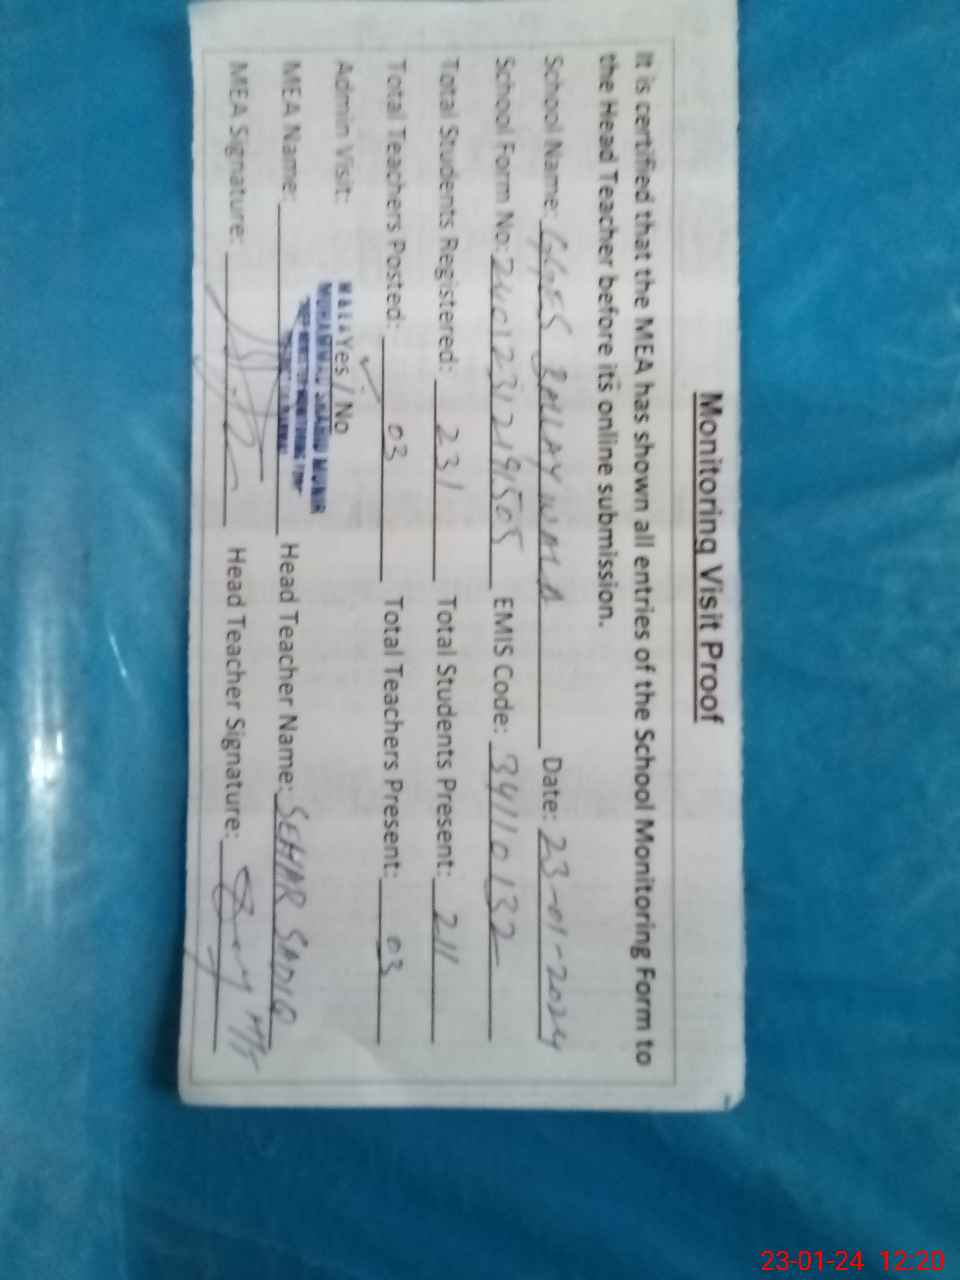 Monitoring Visit Proof
It is certified that the MEA has shown all entries of the School Monitoring Form to
the Head Teacher before its online submission.
School Name: GGES Date: 23-01-2024
School Form No: EMIS Code: 34110132
Total Students Registered: 231 Total Students Present: 211
Total Teachers Posted: 03 Total Teachers Present: 03
Admin Visit: Yes / No
MUHAMMAD MUNIR
MEA Name: Head Teacher Name: SEHAR SADIQ
MEA Signature: Head Teacher Signature:
23-01-24 12:20